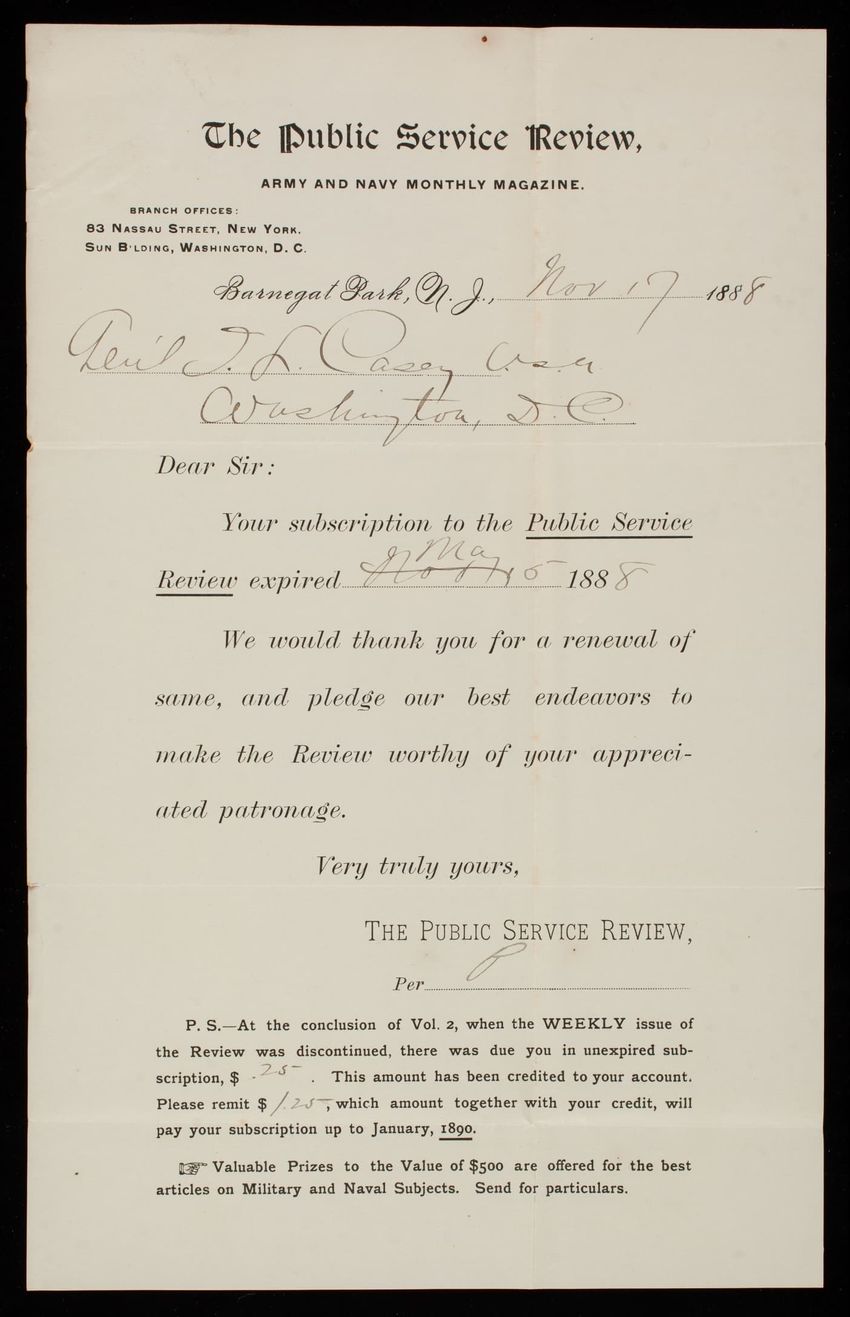 The Public Service Review,
ARMY AND NAVY MONTHLY MAGAZINE.
BRANCH OFFICES:
83 NASSAU STREET, NEW YORK.
SUN B'LDING, WASHINGTON, D. C.
Barnegat Park, N. J., Nov 17 1888
Gen'l T. L. Casey U.S.A
Washington, D.C.
Dear Sir:
Your subscription to the Public Service
May
Review expired Nov 15 1888
We would thank you for a renewal of
same, and pledge our best endeavors to
make the Review worthy of your appreci-
ated patronage.
Very truly yours,
THE PUBLIC SERVICE REVIEW,
Per P
P. S.—At the conclusion of Vol. 2, when the WEEKLY issue of
the Review was discontinued, there was due you in unexpired sub-
scription, $ .25 . This amount has been credited to your account.
Please remit $ 1.25, which amount together with your credit, will
pay your subscription up to January, 1890.
☞ Valuable Prizes to the Value of $500 are offered for the best
articles on Military and Naval Subjects. Send for particulars.